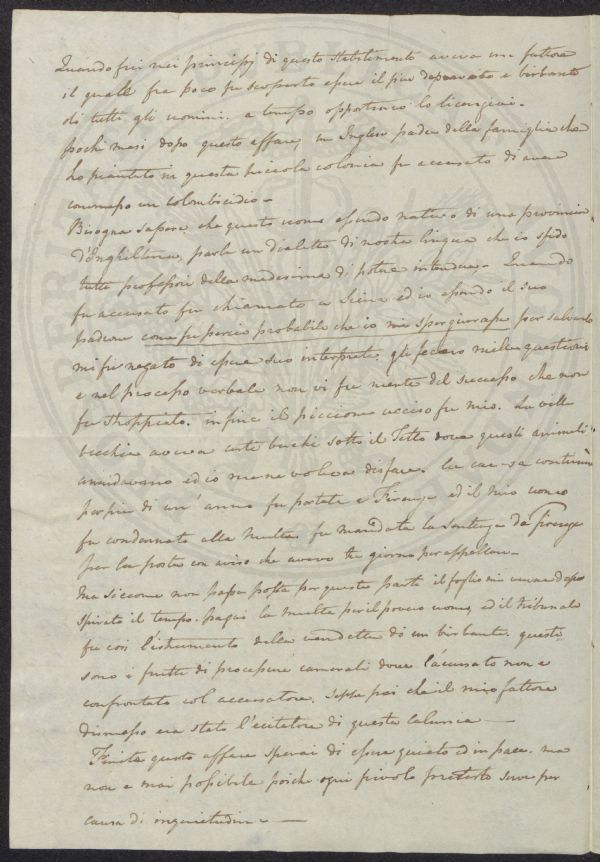 Quando fui nei principj di questo stabilimento aveva un fattore
il quale fra poco fu scoperto essere il piu depravato e birbante
di tutti gli uomini. a tempo opportuno lo licenziai.
pochi mesi dopo questo affare, un Inglese padre della famiglia che
ho piantato in questa piccola colonia fu accusato di avere
commesso un colombicidio -
Bisogna sapere che questo uomo essendo nativo di una provincia
d'Inghilterra, parla un dialetto di nostra lingua che io sfido
tutti professori della medesima di poter intendere - Quando
fu accusato fu chiamato a Siena ed io essendo il suo
padrone come fu perciò probabile che io mi spergiurasse per salvarlo
mi fu negato di essere suo interprete. gli fecero mille questioni
e nel processo verbale non vi fu niente del successo che non
fu stroppiato. infine il piccione ucciso fu mio. La villa
vecchia aveva certe buchi sotto il Tetto dove questi animali
annidavano ed io me ne voleva disfare. la causa continuò
per piu di un' anno fu portata a Firenze ed il mio uomo
fu condannato alla multa fu mandata la sentenza da Firenze
per la posta con aviso che aveva tre giorni per appellare -
Ma siccome non passa posta per queste parti il foglio mi venne dopo
spirato il tempo. pagai la multa per il povero uomo, ed il tribunale
fu cosi l'istrumento della vendetta di un birbante. questi
sono i frutti di processure camerali dove l'accusato non e
confrontato col accusatore. Seppe poi che il mio fattore
dismesso era stato l'ecitatore di questa calunia —
Finita questo affare sperai di essere quieto ed in pace. ma
non e mai possibile poiche ogni pivolo pretesto serve per
causa di inquietudine —